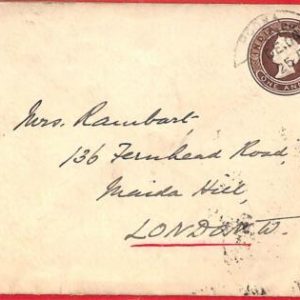 INDIA
ONE AN
25
Mrs. Rambart
136 Fernhead Road,
Maida Hill,
LONDON. W.